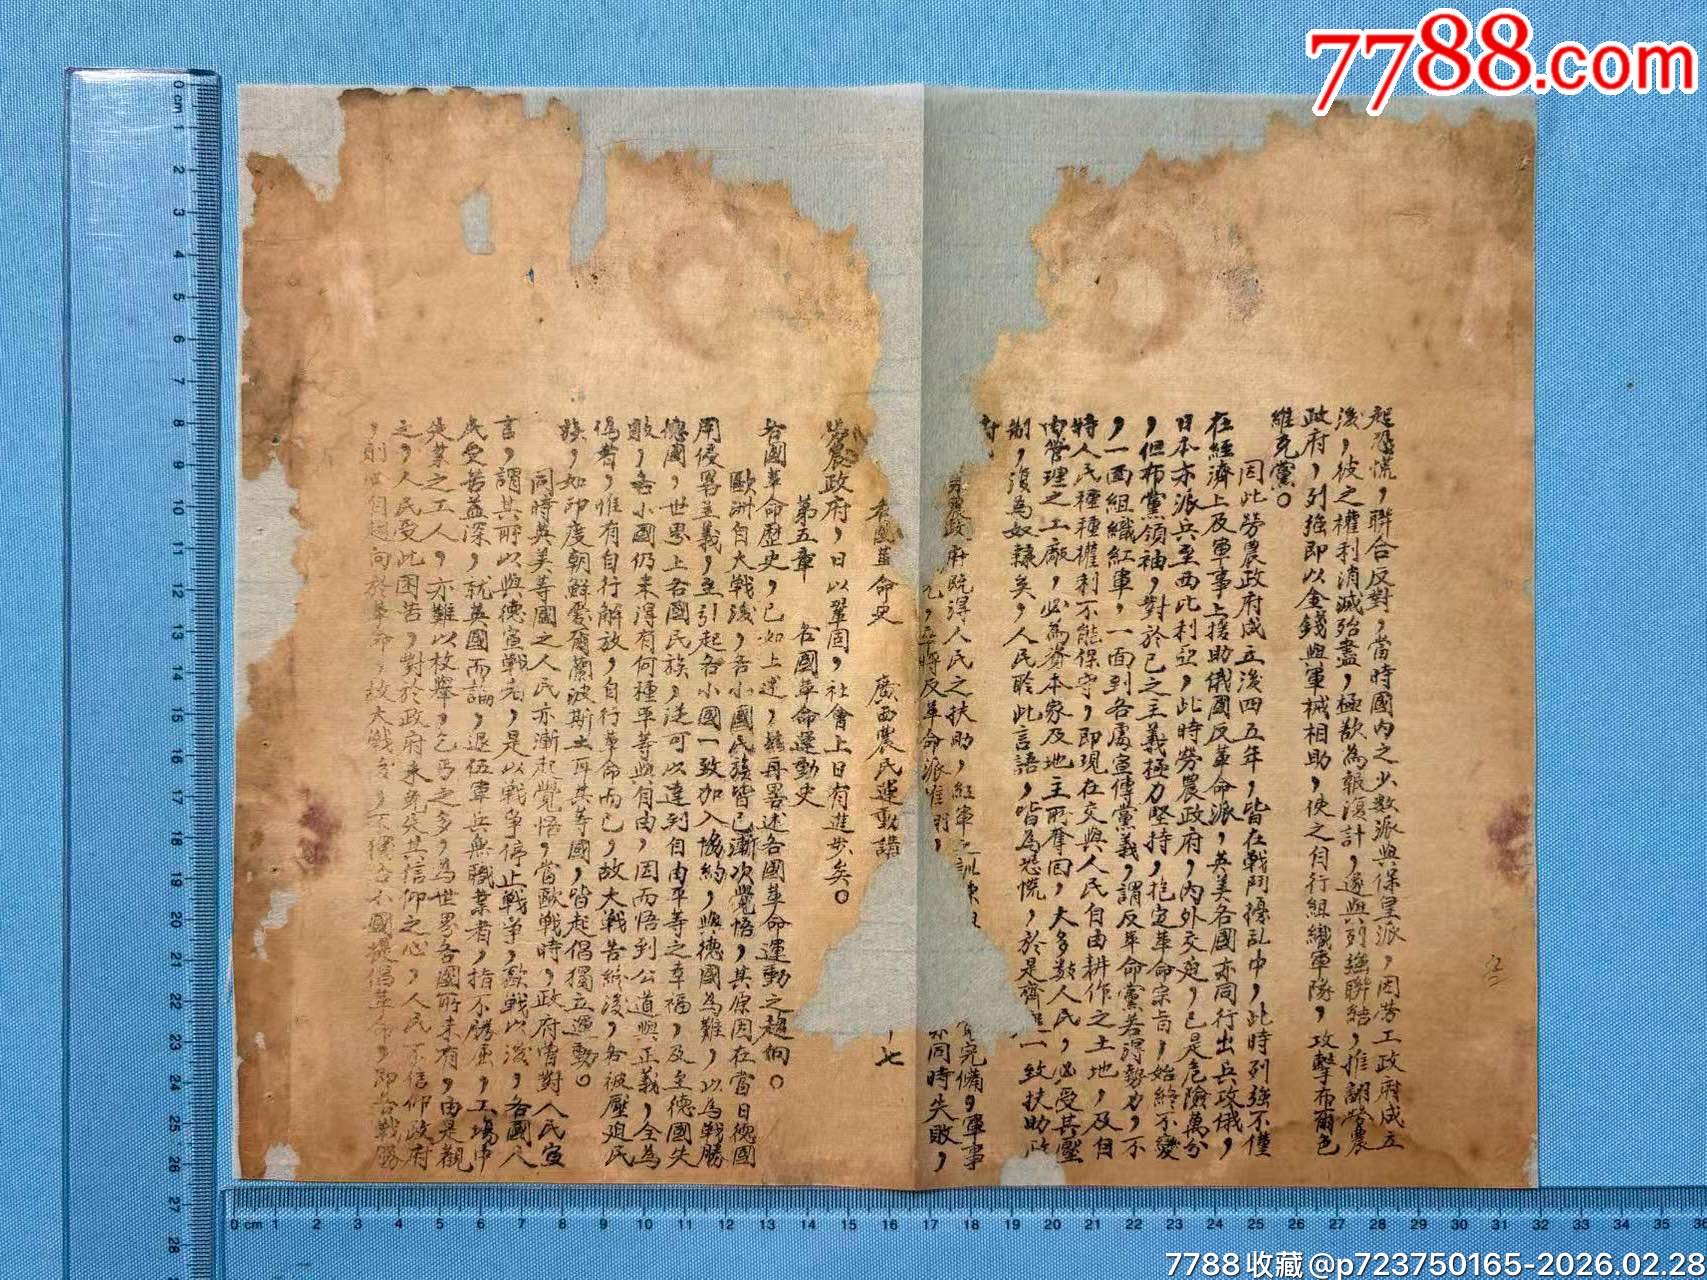 7788.com
起恐慌，聯合反對，當時國內之少數派與保皇派，因勞工政府成立
後，彼之權利消滅殆盡，極欲為報復計，遂與列強聯結，推翻勞農
政府，列強即以金錢與軍械相助，使之自行組織軍隊，攻擊布爾色
維克黨。
因此勞農政府成立後四五年，皆在戰鬥擾乱中，此時列強不僅
在經濟上及軍事上援助俄國反革命派，英美各國亦同行出兵政俄，
日本亦派兵至西比利亞，此時勞農政府，內外交迫，已是危險萬分
，但布黨領袖，對於己之主義極力堅持，抱定革命宗旨，始終不變
，一面組織紅軍，一面到各處宣傳黨義，謂反革命黨若得勢力，不
特人民種種權利不能保守，即現在交與人民自由耕作之土地，及自
由管理之工廠，必為資本家及地主所奪回，大多數人民，必受其壓
制，復為奴隸矣，人民聆此言語，皆為恐慌，於是齊 一致扶助政
府
勞農政府既得人民之扶助，紅軍之訓練 完備，軍事
同時失敗，
各國革命史 廣西農民運動講 十七
勞農政府，日以鞏固，社會上日有進步矣。
第五章 各國革命運動史
各國革命歷史，已如上述，茲再畧述各國革命運動之趨向。
歐洲自大戰後，各小國民族皆已漸次覺悟，其原因在當日德國
用侵畧主義，至引起各小國一致加入協約，與德國為難，以為戰勝
德國，世界上各國民族，從可以達到自由平等之幸福，及至德國失
敗，各小國仍未得有何種平等與自由，因而悟到公道與正義，全為
偽者，惟有自行解放，自行革命而已，故大戰告終後，各被壓迫民
族，如印度朝鮮愛爾蘭波斯土耳其等國，皆起倡獨立運動。
同時英美等國之人民亦漸起覺悟，當歐戰時，政府嘗對人民宣
言，謂其所以與德宣戰者，是以戰爭停止戰爭，歐戰以後，各國人
民受苦益深，就英國而論，退伍軍兵無職業者，指不勝屈，工場中
失業之工人，亦難以枚舉，乞丐之多，為世界各國所未有，由是觀
之，人民受此困苦，對於政府未免失其信仰之心，人民不信仰政府
，則必自趨向於革命，故大戰後，不獨各小國提倡革命，即各戰勝
7788收藏@p723750165-2026.02.28